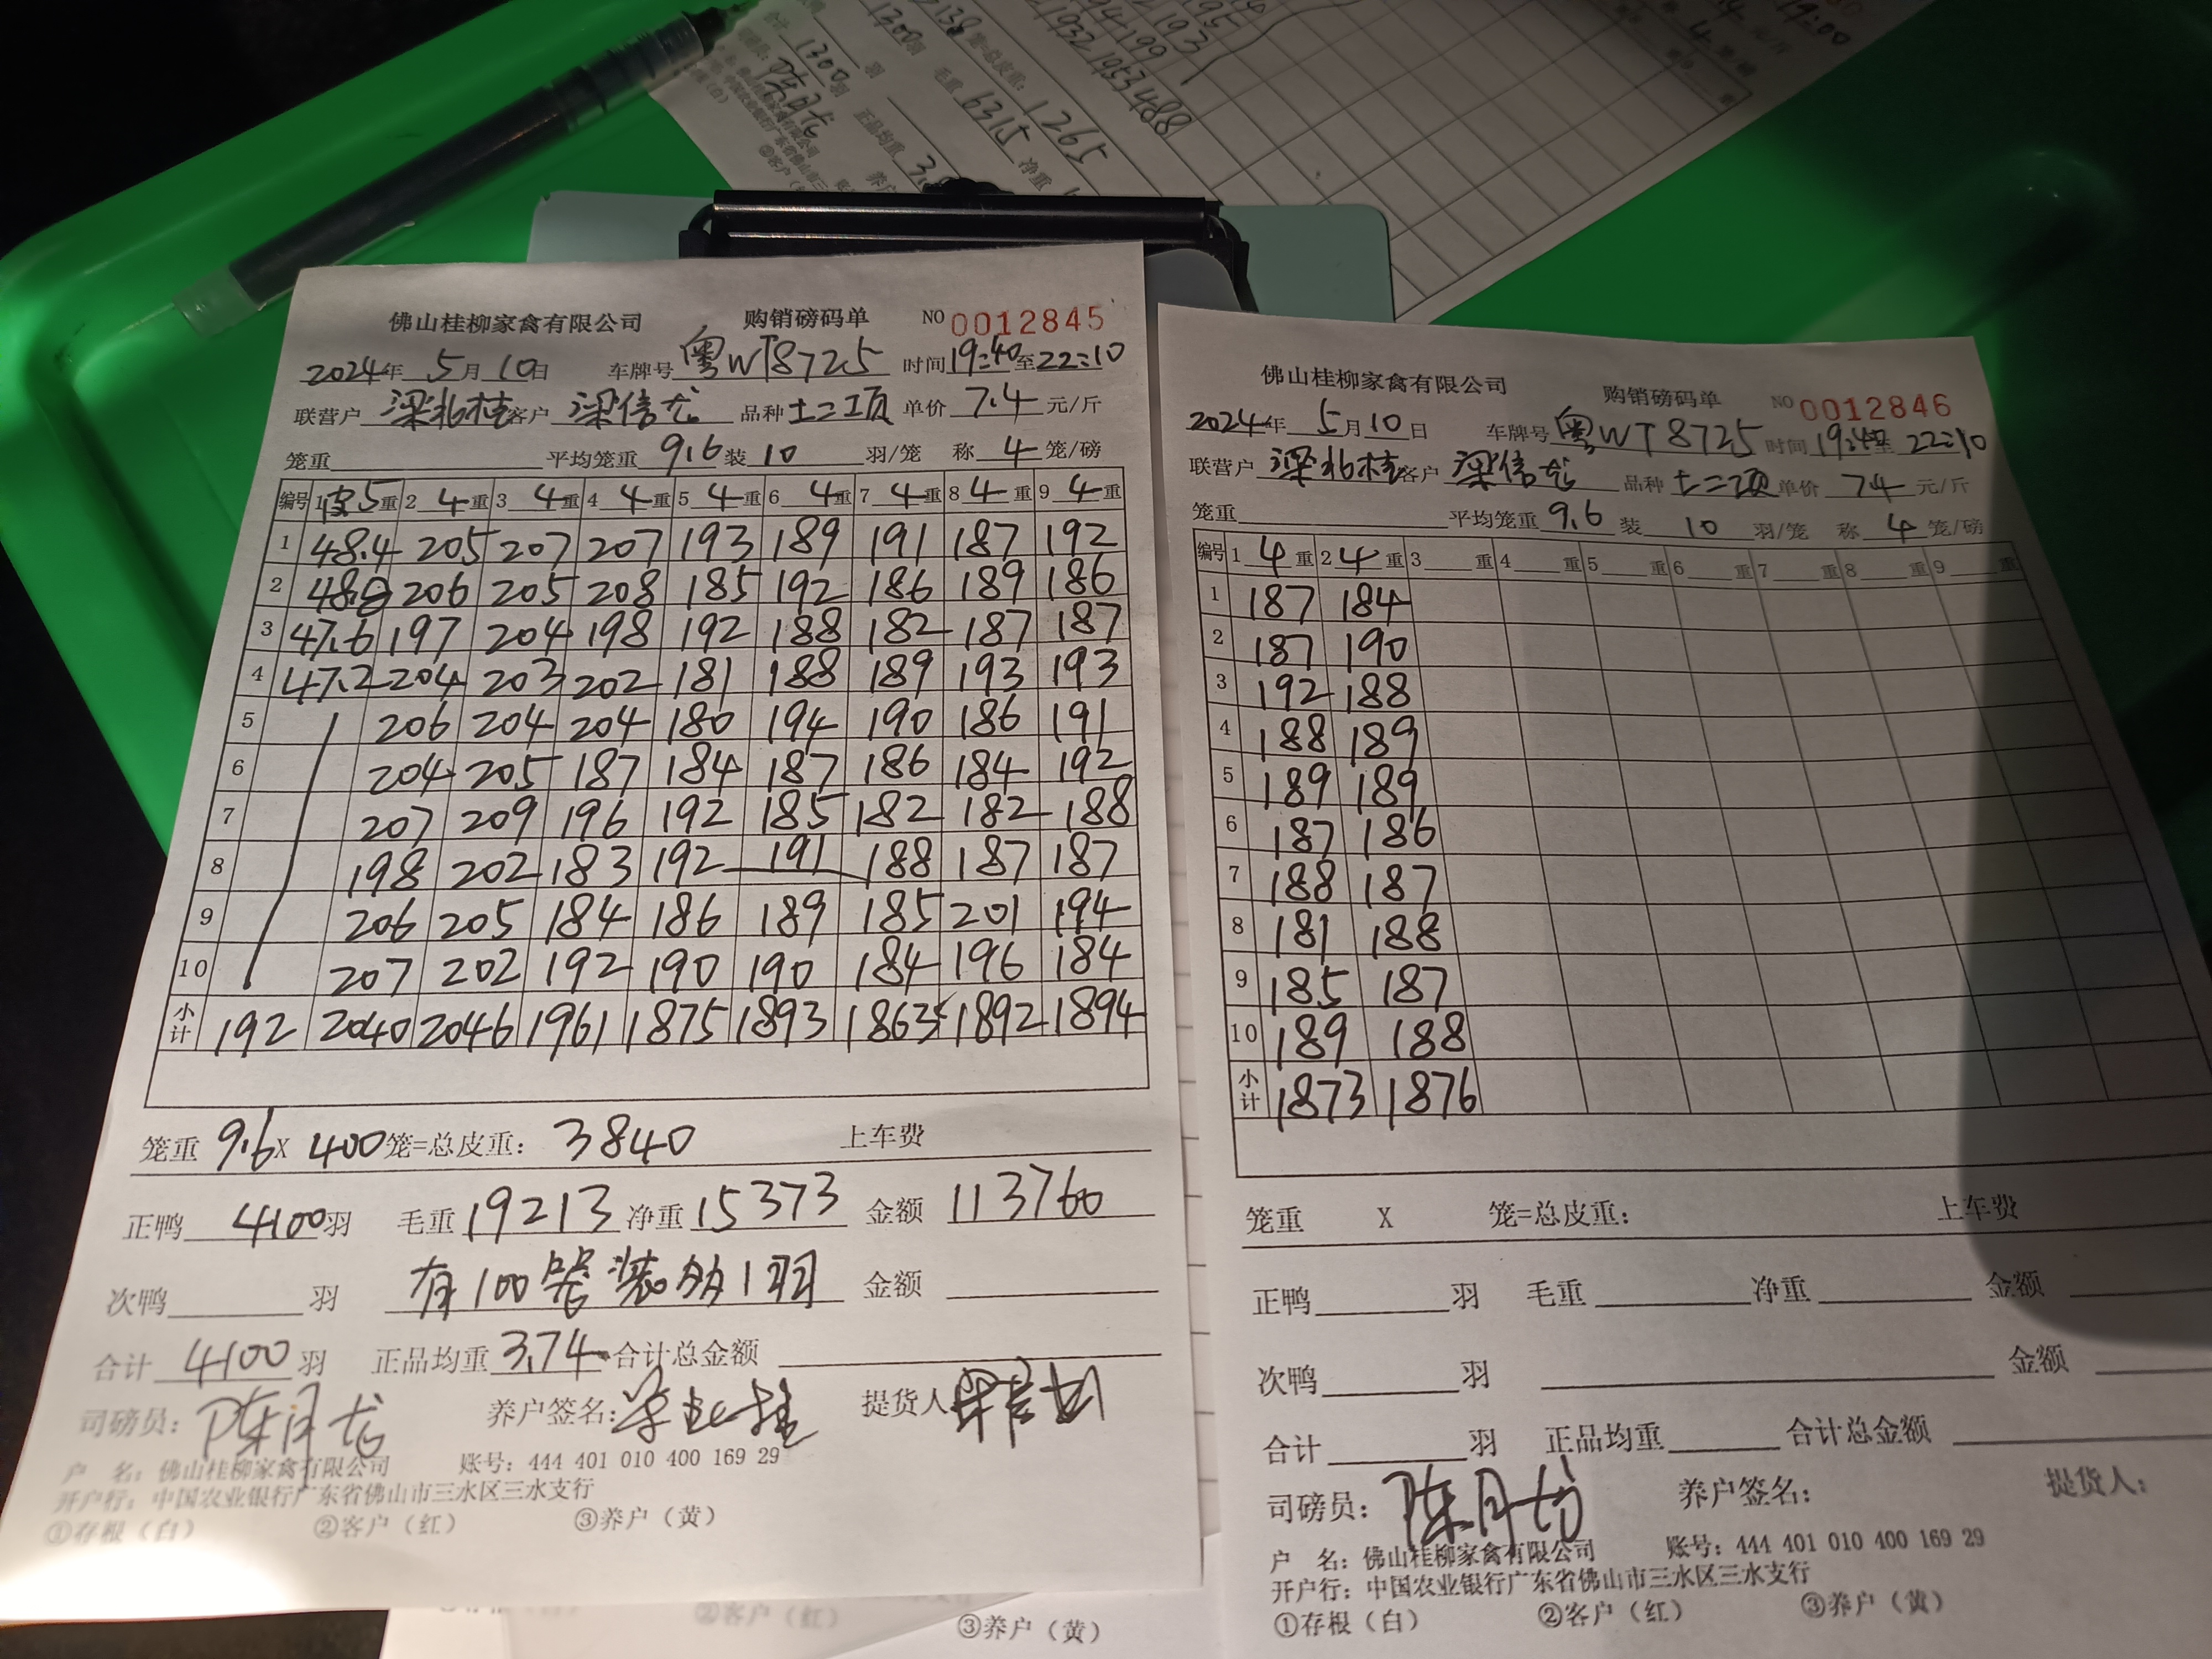 1300羽 毛重 6315 净重
138 笼=总皮重: 1265
合计 1300 羽 正品均重 3.
陈月龙
1932 1953 488
194 199
193
195
19:00
佛山桂柳家禽有限公司 购销磅码单 NO 0012845
2024年 5月 10日 车牌号 粤WT8725 时间 19:40至22:10
联营户 梁兆桂 客户 梁信龙 品种 土二项 单价 7.4 元/斤
笼重 平均笼重 9.6 装 10 羽/笼 称 4 笼/磅
编号 1 皮5 重 2 4 重 3 4 重 4 4 重 5 4 重 6 4 重 7 4 重 8 4 重 9 4 重
1 48.4 205 207 207 193 189 191 187 192
2 48.8 206 205 208 185 192 186 189 186
3 47.6 197 204 198 192 188 182 187 187
4 47.2 204 203 202 181 188 189 193 193
5 206 204 204 180 194 190 186 191
6 204 205 187 184 187 186 184 192
7 207 209 196 192 185 182 182 188
8 198 202 183 192 191 188 187 187
9 206 205 184 186 189 185 201 194
10 207 202 192 190 190 184 196 184
小计 192 2040 2046 1961 1875 1893 1863 1892 1894
笼重 9.6 X 400 笼=总皮重: 3840 上车费
正鸭 4100 羽 毛重 19213 净重 15373 金额 113760
次鸭 羽 有100笼装多1羽 金额
合计 4100 羽 正品均重 3.74 合计总金额
司磅员: 陈月龙 养户签名: 梁兆桂 提货人
户 名: 佛山桂柳家禽有限公司 账号: 444 401 010 400 169 29
开户行: 中国农业银行广东省佛山市三水区三水支行
①存根(白) ②客户(红) ③养户(黄)
②客户(红) ③养户(黄)
佛山桂柳家禽有限公司 购销磅码单 NO 0012846
2024年 5月 10日 车牌号 粤WT8725 时间 19:40至 22:10
联营户 梁兆桂 客户 梁信龙 品种 土二项 单价 74 元/斤
笼重 平均笼重 9.6 装 10 羽/笼 称 4 笼/磅
编号 1 4 重 2 4 重 3 重 4 重 5 重 6 重 7 重 8 重 9 重
1 187 184
2 187 190
3 192 188
4 188 189
5 189 189
6 187 186
7 188 187
8 181 188
9 185 187
10 189 188
小计 1873 1876
笼重 X 笼=总皮重: 上车费
正鸭 羽 毛重 净重 金额
次鸭 羽 金额
合计 羽 正品均重 合计总金额
司磅员: 陈月龙 养户签名: 提货人:
户 名: 佛山桂柳家禽有限公司 账号: 444 401 010 400 169 29
开户行: 中国农业银行广东省佛山市三水区三水支行
①存根(白) ②客户(红) ③养户(黄)